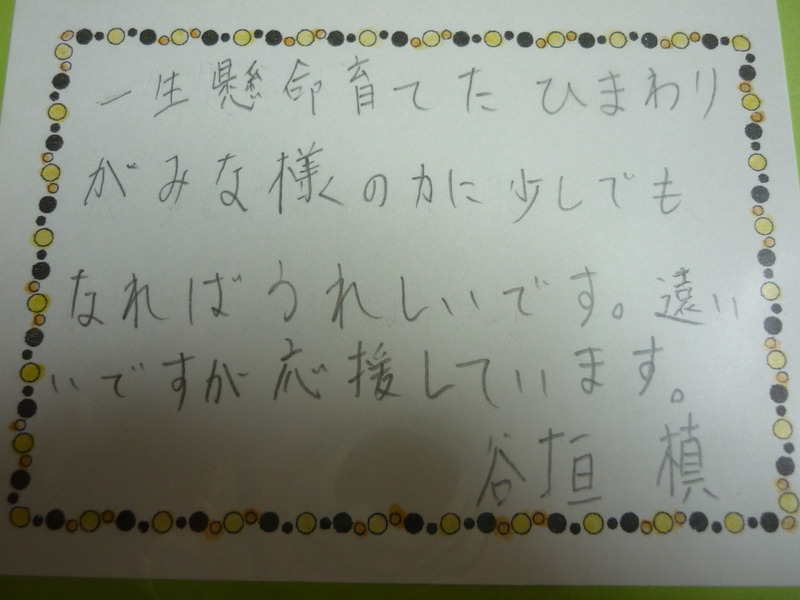 一生懸命育てた ひまわり
がみな様の力に少しでも
なればうれしいです。遠い
いですが応援しています。
谷垣 槙